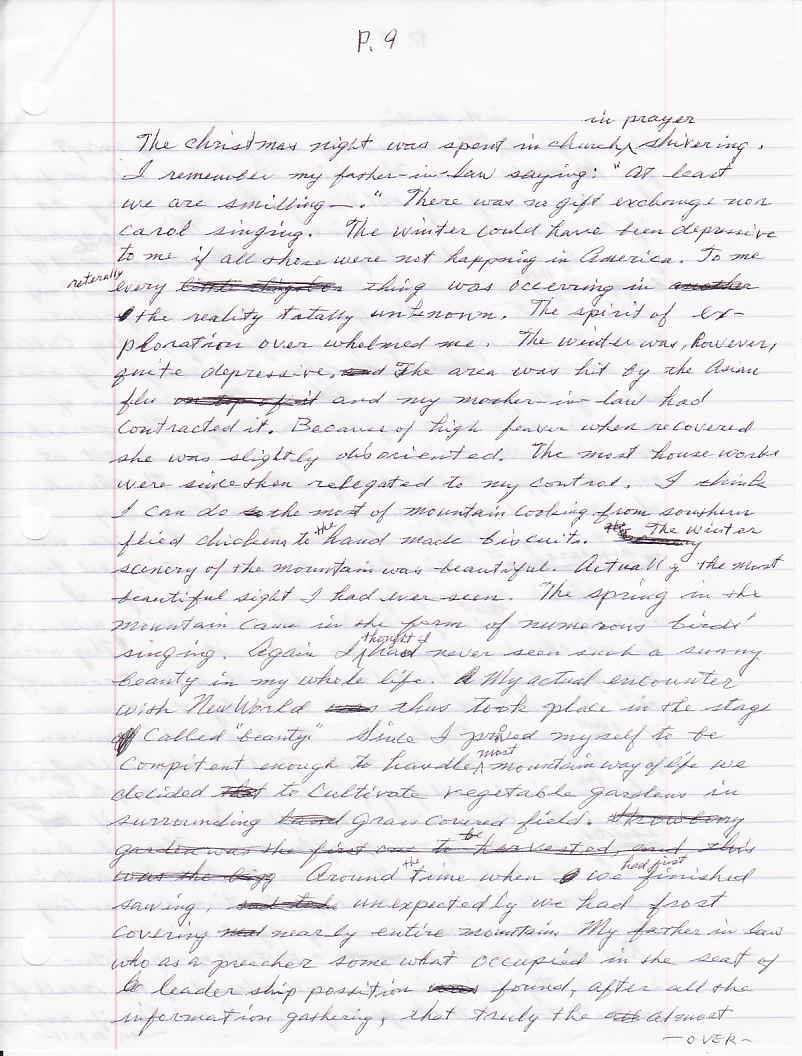 P. 9
in prayer
The christmas night was spent in church, shivering.
I remember my father-in-law saying: "At least
we are smilling—." There was no gift exchange nor
carol singing. The winter could have been depressive
to me if all these were not happning in America. To me
reterally
every little thing thing was occerring in another
the reality totally unknown. The spirit of ex-
ploration over whelmed me. The winter was, however,
quite depressive. and The area was hit by the Asian
flu on top of it and my mother-in-law had
contracted it. Because of high feaver when recovered
she was slightly disoriented. The most house works
were since then relegated to my control. I think
I can do the most of mountain cooking from southern
flied chickens to the hand made biscuits. The winter
scenery of the mountain was beautiful. Actually the most
beautiful sight I had ever seen. The spring in the
mountain came in the form of numerous birds'
singing. Again I thought I had never seen such a sunny
beauty in my whole life. My actual encounter
with New World was thus took place in the stage
of called "beauty." Since I proved myself to be
compitent enough to handle most mountain way of life we
decided that to cultivate vegetable gardens in
surrounding grass covered field.
garden was the first one to be harvested, and this
was the Around the time when we had first finished
sawing, unexpectedly we had frost
covering nearly entire mountain. My father in law
who as a preacher some what occupied in the seat of
leader ship possition was found, after all the
information gathering, that truly the almost
—OVER—